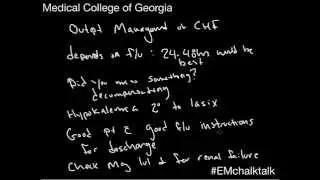 Medical College of Georgia
Output Management of CHF
depends on f/u : 24-48hr would be
best
Did you miss something?
decompensating
Hypokalemia 2° to lasix
Good pt & good f/u instructions
for discharge
Check Mg lvl & for renal failure
#EMchalktalk